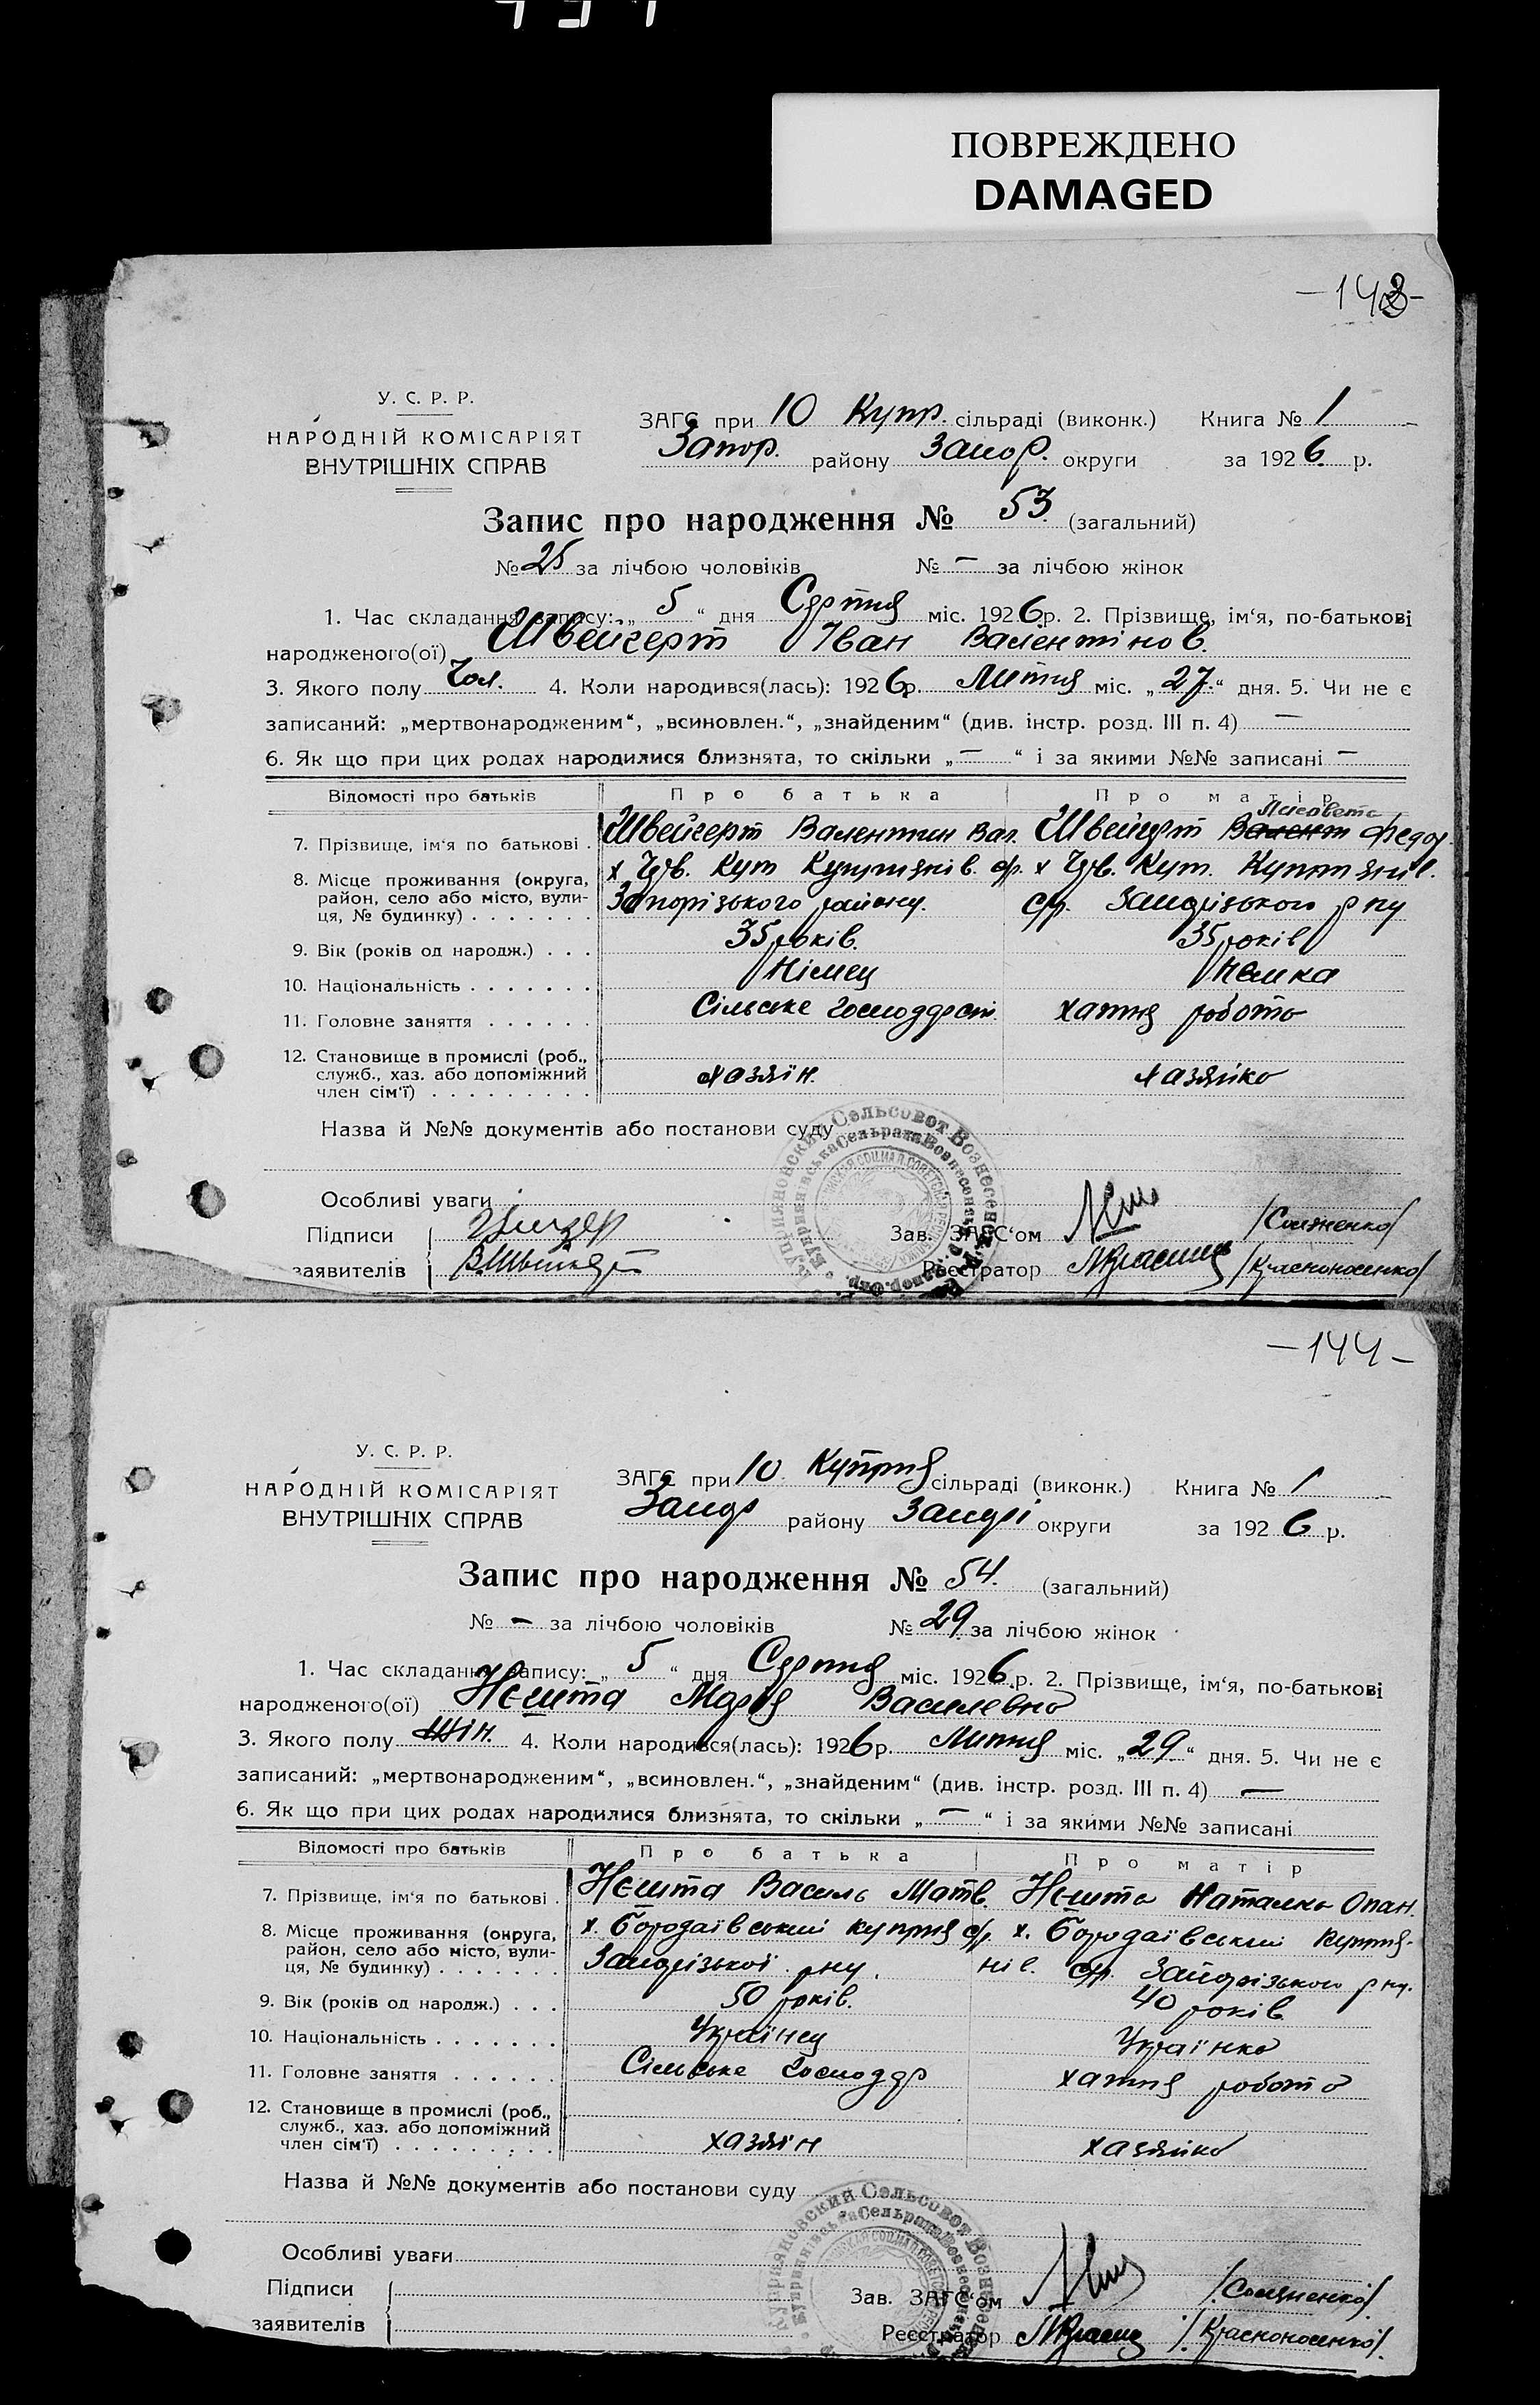 ПОВРЕЖДЕНО
DAMAGED
У. С. Р. Р.
НАРОДНІЙ КОМІСАРІЯТ
ВНУТРІШНІХ СПРАВ
ЗАГС при 10 Купр. сільраді (виконк.) Книга № 1
Запор. району Запор. округи за 1926 р.
Запис про народження № 53 (загальний)
№ 25 за лічбою чоловіків № — за лічбою жінок
1. Час складання запису: „5“ дня Серпня міс. 1926 р. 2. Прізвище, ім‘я, по-батькові
народженого(ої) Швейгерт Іван Валентінов.
3. Якого полу Чол. 4. Коли народився(лась): 1926 р. Липня міс. „27.“ дня. 5. Чи не є
записаний: „мертвонародженим“, „всиновлен.“, „знайденим“ (див. інстр. розд. III п. 4) —
6. Як що при цих родах народилися близнята, то скільки „—“ і за якими №№ записані —
Відомості про батьків Про батька Про матір
7. Прізвище, ім‘я по батькові . Швейгерт Валентин Вал. Швейгерт Лисовета Федор.
8. Місце проживання (округа, район, село або місто, вули-ця, № будинку)
Запорізького району. ср. Запорізького р ну
9. Вік (років од народж.) . . . 35 років. 35 років
10. Національність . . . . . . . Німец Немка
11. Головне заняття . . . . . . Сільське господарст. хатня робота
12. Становище в промислі (роб., служб., хаз. або допоміжний член сім‘ї) . . . . . . . . . хазяїн. хазяйка
Назва й №№ документів або постанови суду
Особливі уваги
Підписи Зав. ЗАГС‘ом
заявителів Реєстратор /Красноносенко/
—144—
У. С. Р. Р.
НАРОДНІЙ КОМІСАРІЯТ
ВНУТРІШНІХ СПРАВ
ЗАГС при 10 Купрня сільраді (виконк.) Книга № 1
Запор району Запорі округи за 1926 р.
Запис про народження № 54. (загальний)
№ — за лічбою чоловіків № 29 за лічбою жінок
1. Час складання запису: „5“ дня Серпня міс. 1926 р. 2. Прізвище, ім‘я, по-батькові
народженого(ої) Нешта Марія Василевна
3. Якого полу Жін. 4. Коли народився(лась): 1926 р. Липня міс. „29“ дня. 5. Чи не є
записаний: „мертвонародженим“, „всиновлен.“, „знайденим“ (див. інстр. розд. III п. 4) —
6. Як що при цих родах народилися близнята, то скільки „—“ і за якими №№ записані
Відомості про батьків Про батька Про матір
7. Прізвище, ім‘я по батькові . Нешта Василь Матв. Нешта Наталка Опан.
8. Місце проживання (округа, район, село або місто, вули-ця, № будинку) . . . . . . . х. Бородаївський х. Бородаївський
Запорізької р ну. нів. ср. Запорізького р ну.
9. Вік (років од народж.) . . . 50 років. 40 років
10. Національність . . . . . . . Українец Українка
11. Головне заняття . . . . . . Сільське господар хатня робота
12. Становище в промислі (роб., служб., хаз. або допоміжний член сім‘ї) . . . . . . . . . хазяїн хазяйка
Назва й №№ документів або постанови суду
Особливі уваги
Підписи Зав. ЗАГС‘ом
заявителів Реєстратор /Красноносенко/.